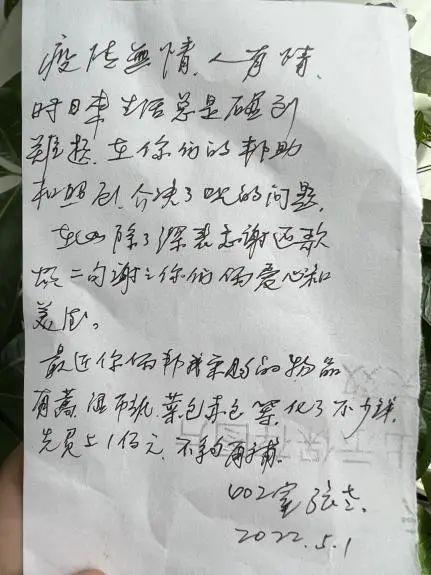 疫情無情,人有情,
时日来生活总是碰到
难题,在你们的帮助
和照创,介决了吃的问题,
在此除了深表志谢还欲
二句谢之你们俩爱心和
美德。
最近你俩帮我采购的物品
有蔬,湿布纸,菜包赤包等,化了不少钱,
先贸上1佰元,不多的再补。
602室张老.
2022.5.1